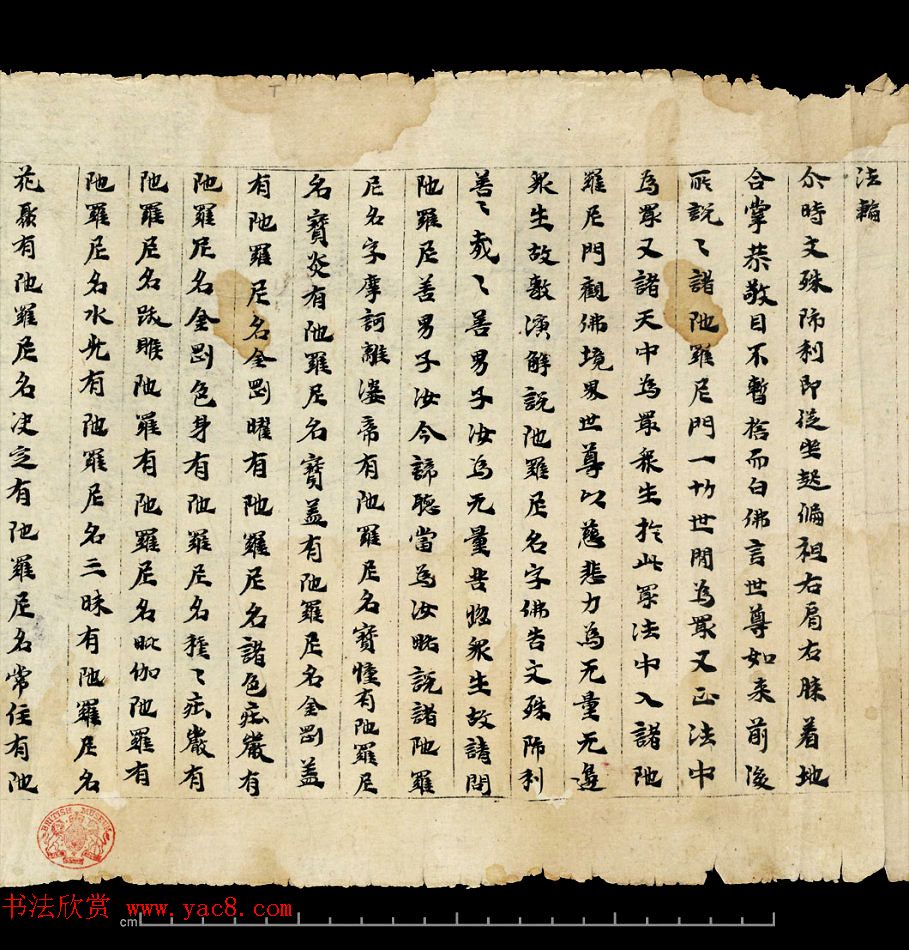 法輪
尒時文殊師利即從坐起偏袒右肩右膝着地
合掌恭敬目不暫捨而白佛言世尊如来前後
所說〻諸陁羅尼門一切世間為㝡又正法中
為㝡又諸天中為㝡衆生於此㝡法中入諸陁
羅尼門觀佛境界世尊以慈悲力為无量无邊
衆生故敷演解說陁羅尼名字佛告文殊師利
善〻哉〻善男子汝為无量苦惱衆生故請問
陁羅尼善男子汝今諦聽當為汝略説諸陁羅
尼名字摩訶離婆帝有陁羅尼名寶幢有陁羅尼
名寶炎有陁羅尼名寶盖有陁羅尼名金剛盖
有陁羅尼名金剛曜有陁羅尼名諸色莊嚴有
陁羅尼名金剛色身有陁羅尼名種〻莊嚴有
陁羅尼名跋睺陁羅有陁羅尼名毗伽陁羅有
陁羅尼名水光有陁羅尼名三昧有陁羅尼名
花聚有陁羅尼名决定有陁羅尼名常住有陁
BRITISH MUSEUM
书法欣赏 www.yac8.com
cm